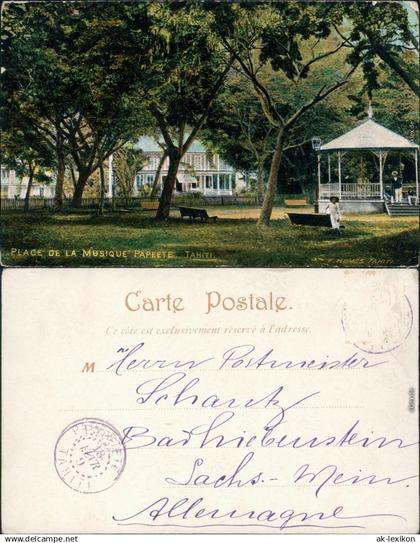 PLACE DE LA MUSIQUE PAPEETE. TAHITI
F. HOMES TAHITI.
Carte Postale.
Ce côté est exclusivement réservé à l'adresse.
M Herrn Postmeister
Schantz
Bad Liebenstein
Sachs.-Mein.
Allemagne
PAPEETE
TAHITI
© ak-lexikon.de
www.ak-lexikon.de
© ak-lexikon